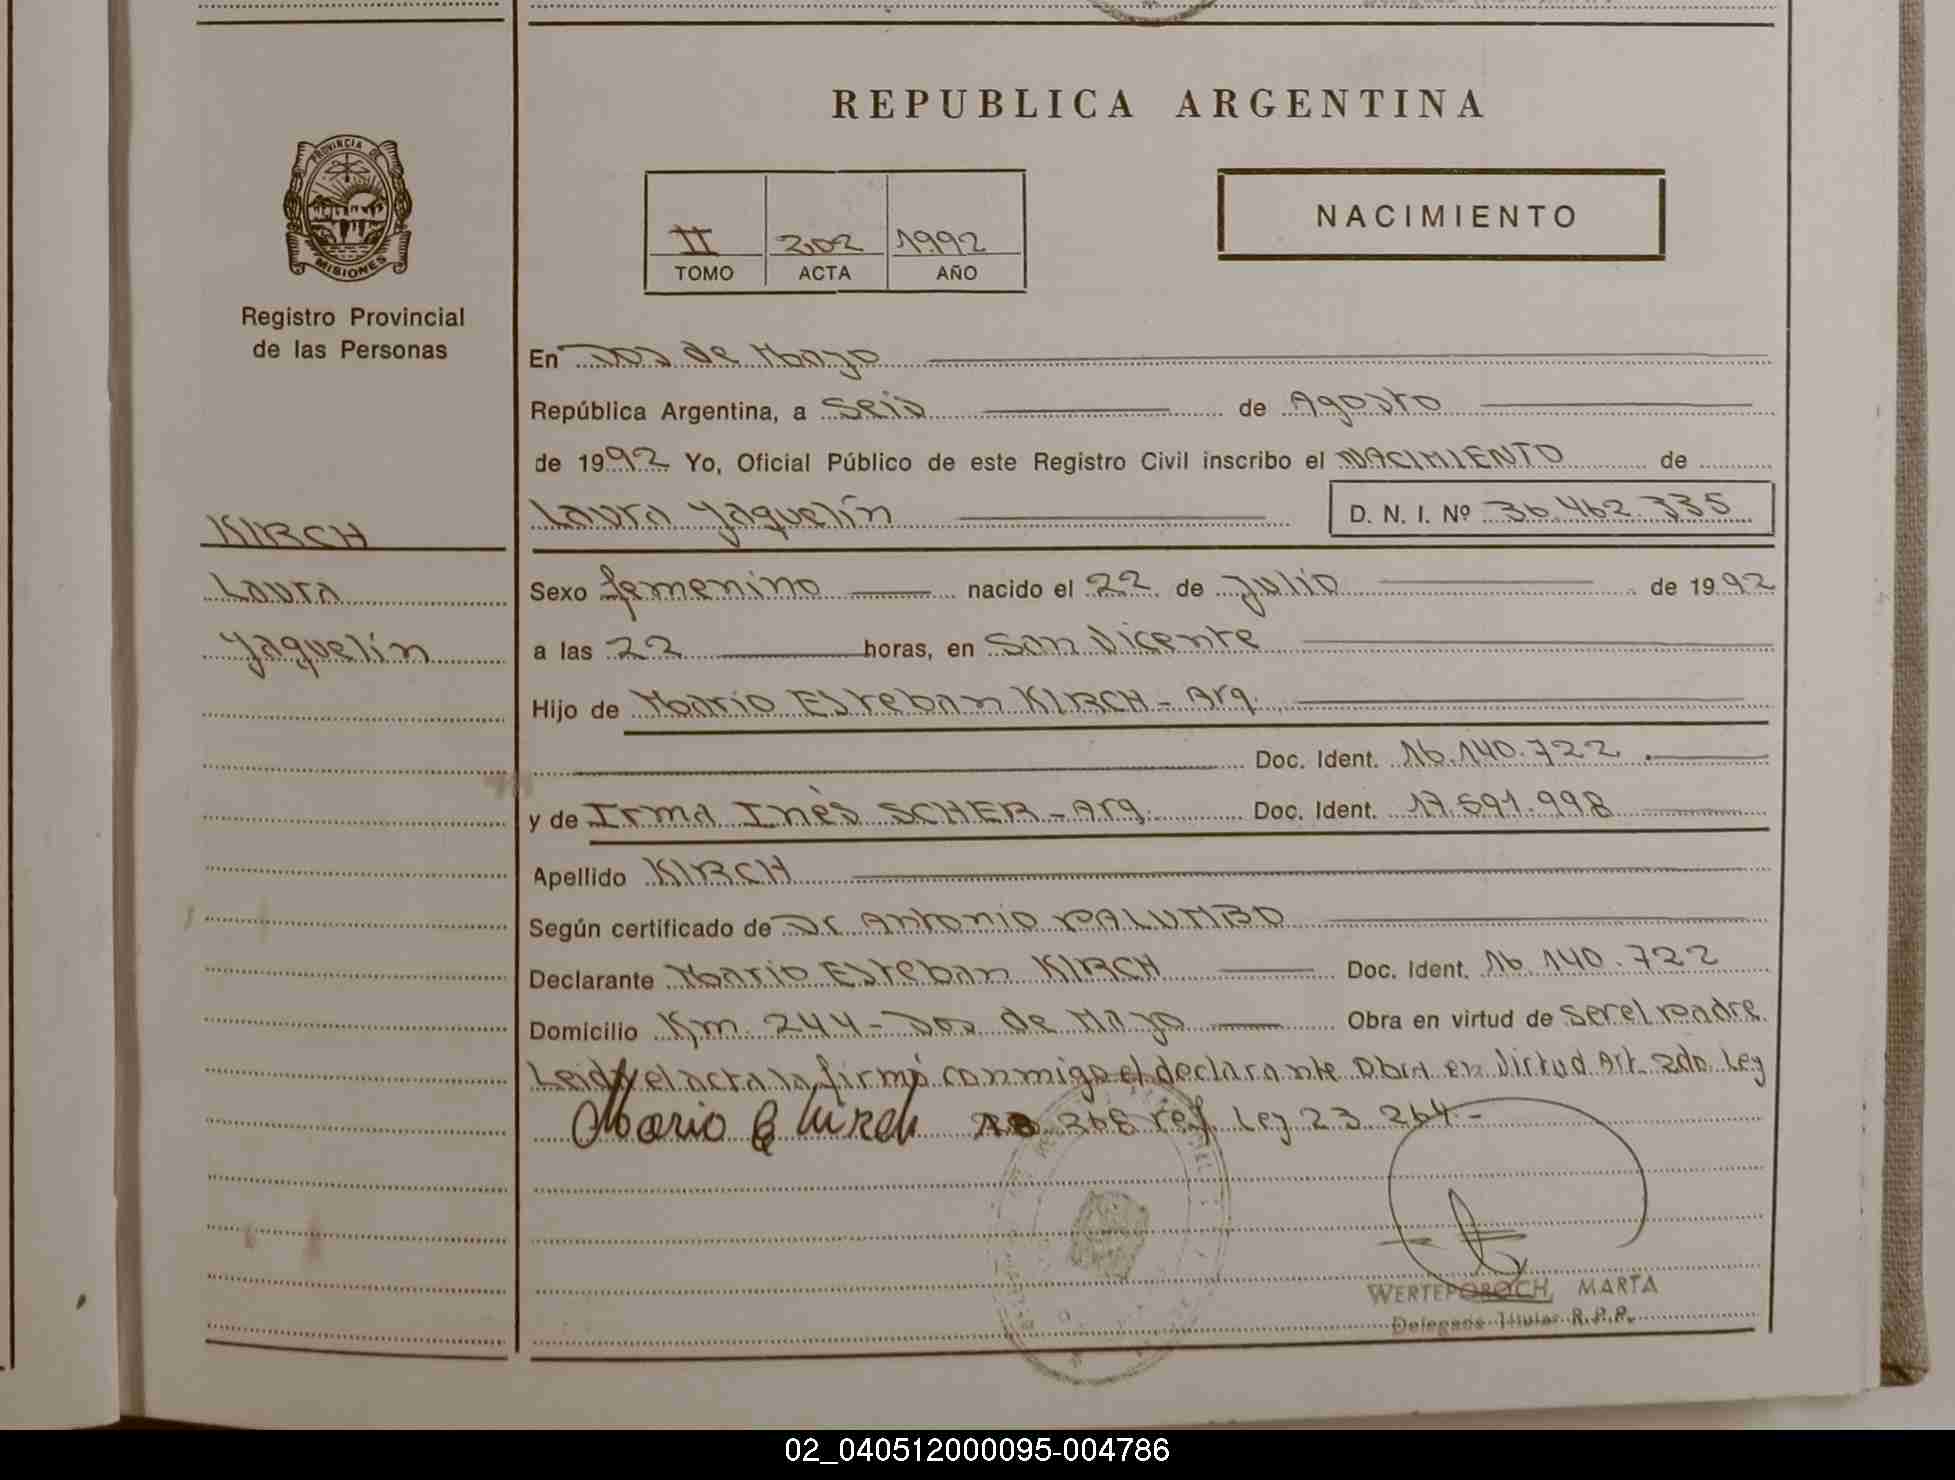 REPUBLICA ARGENTINA
PROVINCIA DE
MISIONES
Registro Provincial
de las Personas
II 302 1992
TOMO ACTA AÑO
NACIMIENTO
En Dos de Mayo
República Argentina, a Seis de Agosto
de 1992 Yo, Oficial Público de este Registro Civil inscribo el NACIMIENTO de
Laura Yaquelín D. N. I. Nº 36.462.335
KIRCH
Laura
Yaquelín
Sexo femenino nacido el 22 de Julio de 1992
a las 22 horas, en San Vicente
Hijo de Mario Esteban KIRCH - Arg.
Doc. Ident. 16.140.722
y de Irma Inés SCHER - Arg. Doc. Ident. 17.691.998
Apellido KIRCH
Según certificado de Dr Antonio PALUMBO
Declarante Mario Esteban KIRCH Doc. Ident. 16.140.722
Domicilio Km. 244 - Dos de Mayo Obra en virtud de ser el padre
Leida el acta la firmó conmigo el declarante Obra en Virtud Art. 2do. Ley
Mario E Kirch 18.268 ref. Ley 23.264 -
WERTEPOROCH, MARTA
Delegada Titular R.P.P.
02_040512000095-004786